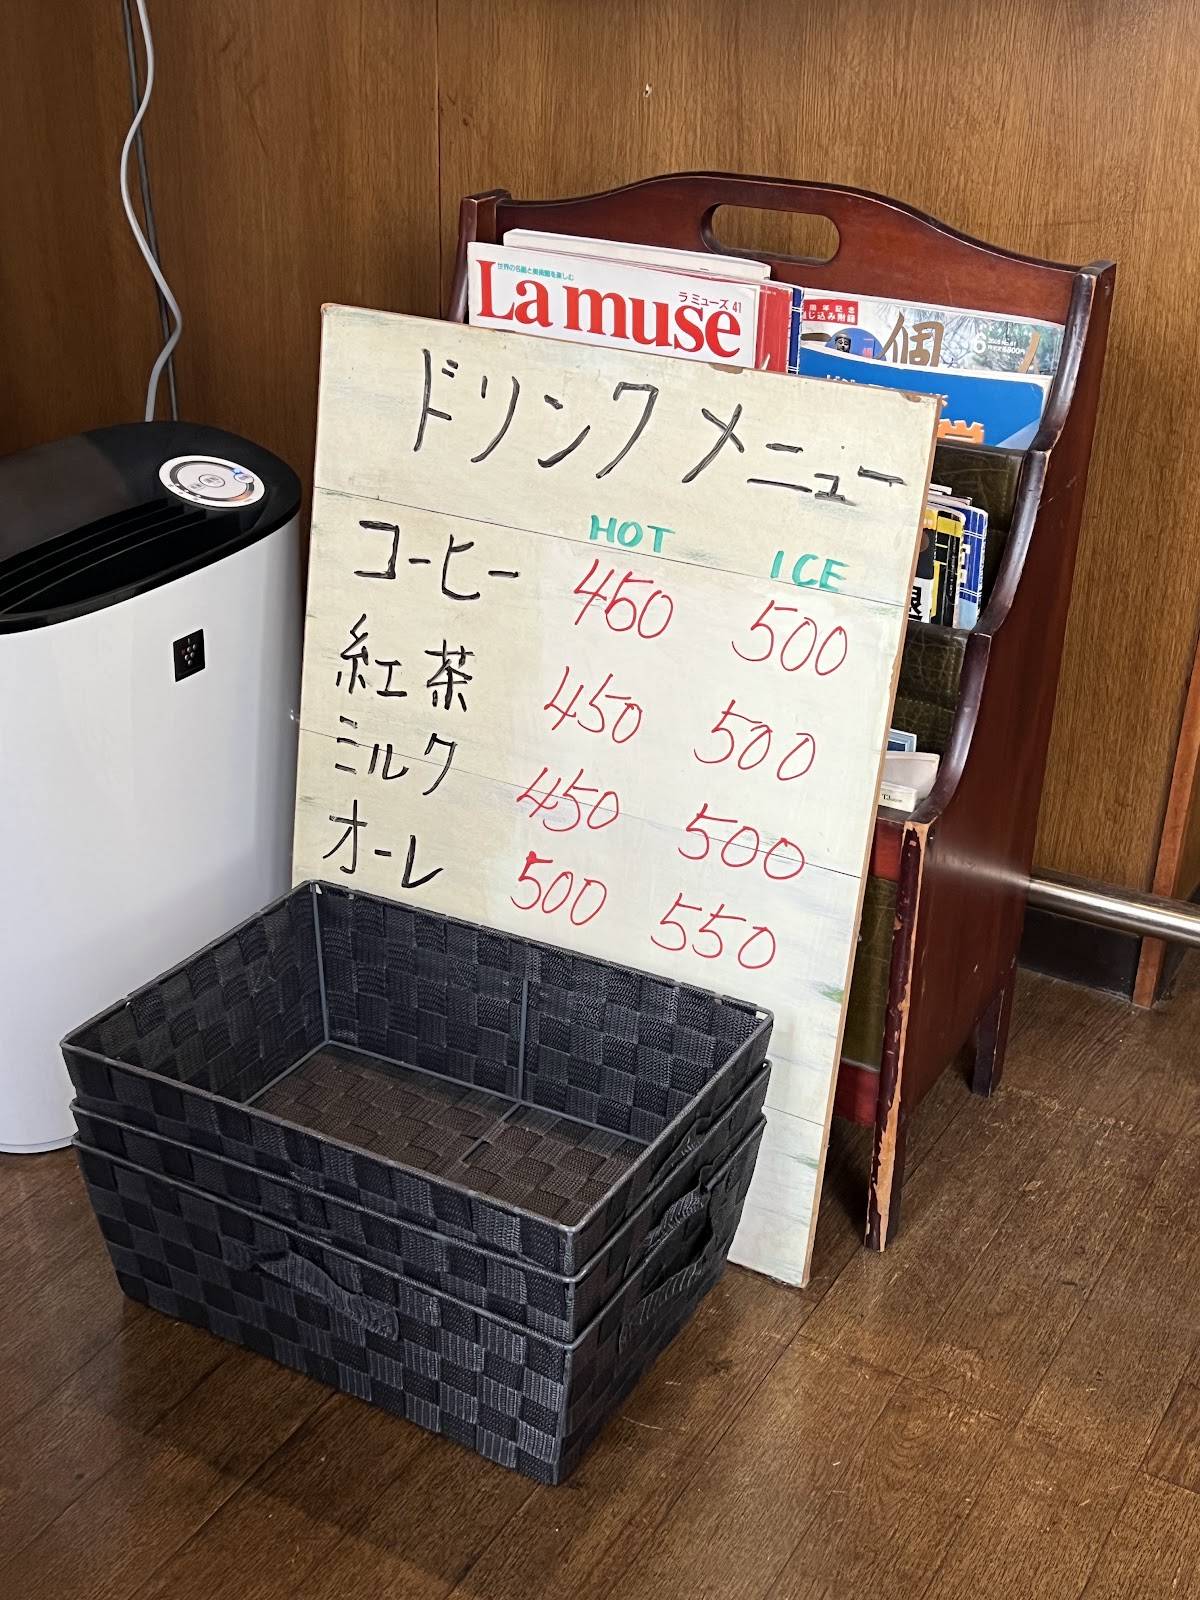 世界の名画と美術館を楽しむ
La muse
ラ ミューズ 41
個
6
ドリンクメニュー
HOT ICE
コーヒー 450 500
紅茶 450 500
ミルク 450 500
オーレ 500 550